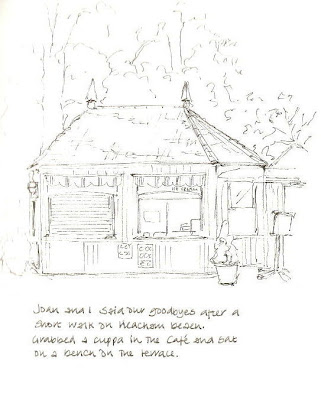 Joan and I said our goodbyes after a
short walk on Heacham beach.
Grabbed a cuppa in the Café and sat
on a bench on the terrace.